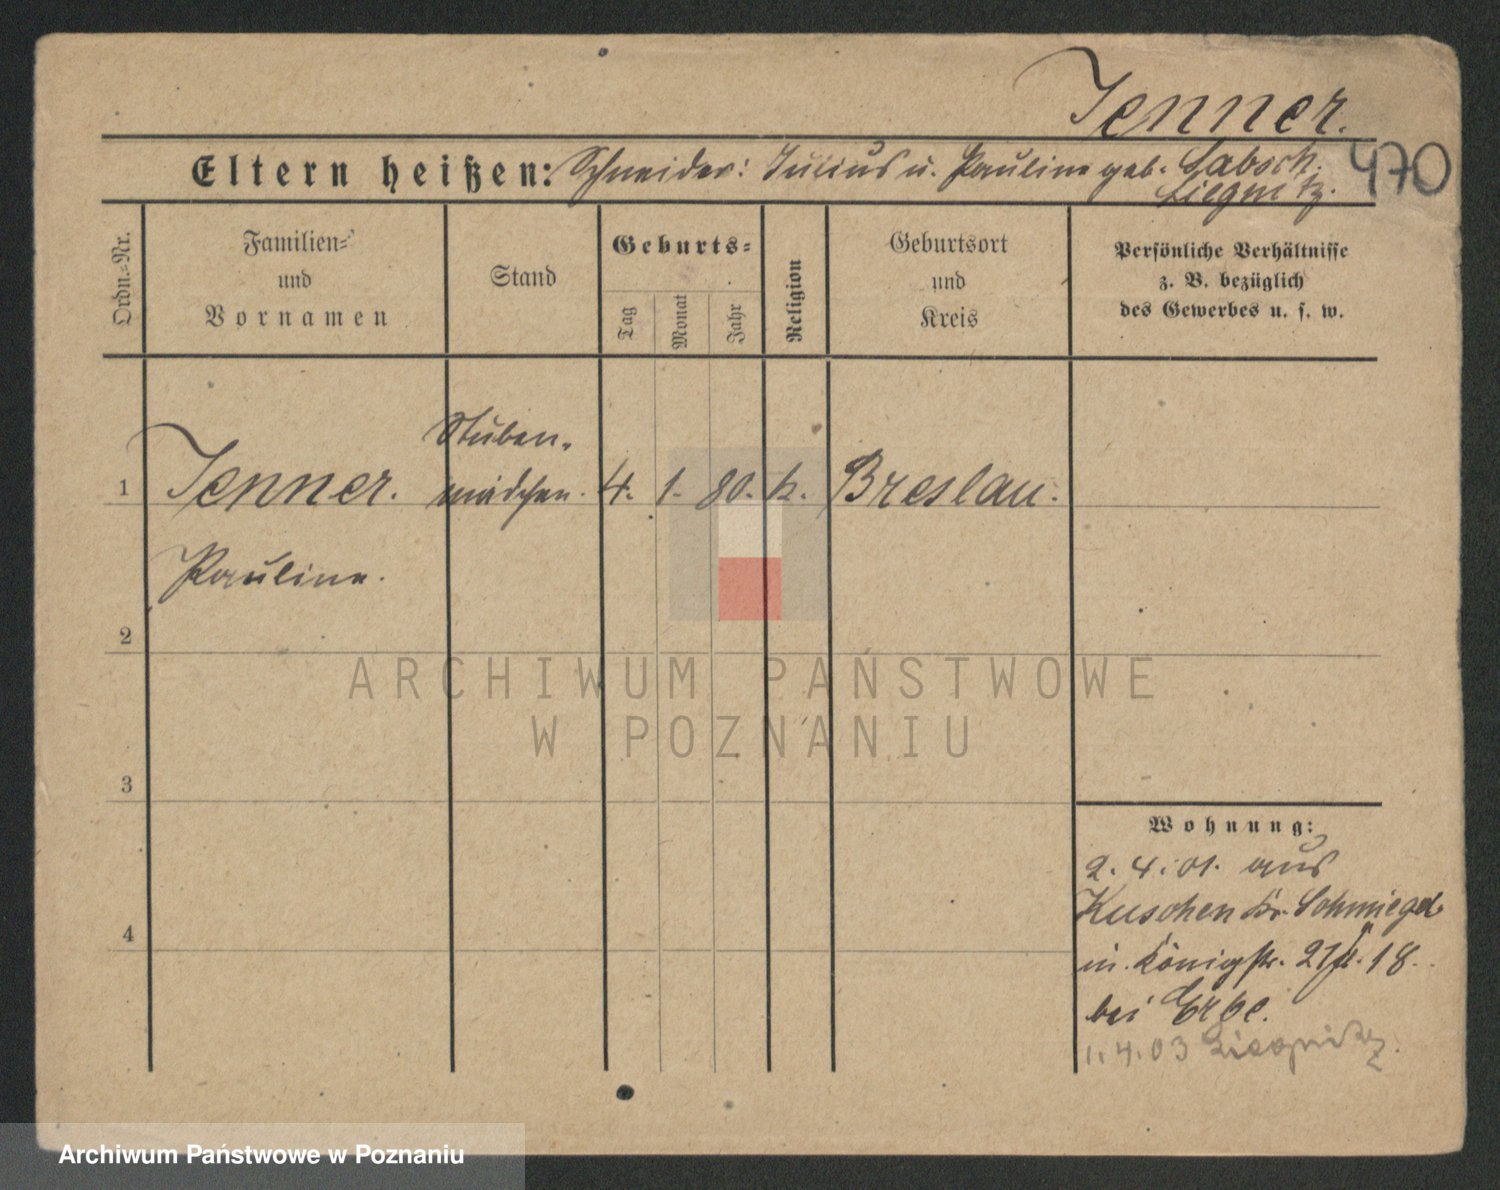 Jenner.
Eltern heißen: Schneider: Julius u. Pauline geb. Labsch.
Liegnitz.
470
Ordn.-Nr.
Familien-
und
Vornamen
Stand
Geburts-
Tag
Monat
Jahr
Religion
Geburtsort
und
Kreis
Persönliche Verhältnisse
z. B. bezüglich
des Gewerbes u. s. w.
1 Jenner. Stuben-
mädchen. 4. 1. 80. k. Breslau.
Pauline.
2
3
4
Wohnung:
2. 4. 01. aus
Kuschen Kr. Schmiegel
in Königstr. 21 18.
bei Erbe.
1. 4. 03 Liegnitz.
ARCHIWUM PAŃSTWOWE
W POZNANIU
Archiwum Państwowe w Poznaniu